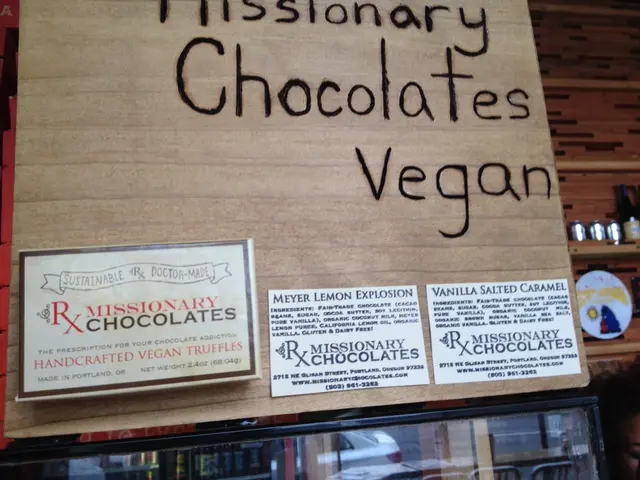 Missionary
Chocolates
Vegan
SUSTAINABLE Rx DOCTOR-MADE
Rx MISSIONARY
CHOCOLATES
THE PRESCRIPTION FOR YOUR CHOCOLATE ADDICTION
HANDCRAFTED VEGAN TRUFFLES
MADE IN PORTLAND, OR NET WEIGHT 2.4oz (68.04g)
MEYER LEMON EXPLOSION
INGREDIENTS: FAIR-TRADE CHOCOLATE (CACAO
BEANS, SUGAR, COCOA BUTTER, SOY LECITHIN,
PURE VANILLA), ORGANIC COCONUT MILK, MEYER
LEMON PUREE, CALIFORNIA LEMON OIL, ORGANIC
VANILLA. GLUTEN & DAIRY FREE!
Rx MISSIONARY
CHOCOLATES
2712 NE GLISAN STREET, PORTLAND, OREGON 97232
WWW.MISSIONARYCHOCOLATES.COM
(503) 961-3262
VANILLA SALTED CARAMEL
INGREDIENTS: FAIR-TRADE CHOCOLATE (CACAO
BEANS, SUGAR, COCOA BUTTER, SOY LECITHIN,
PURE VANILLA), ORGANIC COCONUT MILK,
ORGANIC BROWN SUGAR, VANILLA SEA SALT,
ORGANIC VANILLA. GLUTEN & DAIRY FREE!
Rx MISSIONARY
CHOCOLATES
2712 NE GLISAN STREET, PORTLAND, OREGON 97232
WWW.MISSIONARYCHOCOLATES.COM
(503) 961-3262